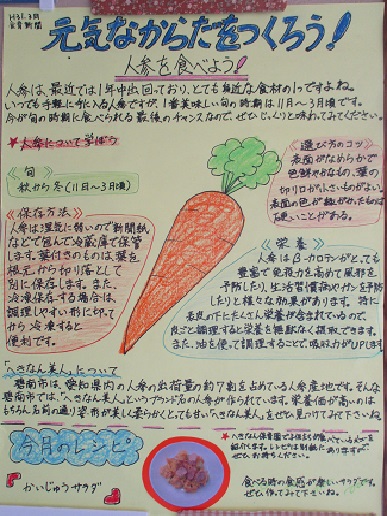 H31.3月
食育新聞
元気なからだをつくろう!
人参を食べよう!
人参は、最近では1年中出回っており、とても身近な食材の1つですよね。
いつでも手軽に手に入る人参ですが、1番美味しい旬の時期は11月～3月頃です。
今が旬の時期に食べられる最後のチャンスなので、ぜひじっくりと味わってみてください。
★人参について学ぼう
《旬》
秋から冬(11月～3月頃)
《保存方法》
人参は湿気に弱いので新聞紙
などで包んで冷蔵庫で保管
します。葉付きのものは、葉を
根元から切り落として
別に保存します。また、
冷凍保存する場合は、
調理しやすい形に切って
から冷凍すると
便利です。
《選び方のコツ》
表面がなめらかで
色鮮やかなもの、葉の
切り口が小さいものがよい。
表面の色が
硬いことがある。
《栄養》
人参はβ-カロテンがとても
豊富で免疫力を高めて風邪を
予防したり、生活習慣病やガンを予防
したりと様々な効果があります。特に
皮の下にたくさん栄養が含まれているので、
皮ごと調理すると栄養を無駄なく摂取できます。
また、油を使って調理することで、吸収力がUPします。
「へきなん美人」について
碧南市は、愛知県内の人参の出荷量の約7割を占めている人参産地です。そんな
碧南市では、「へきなん美人」というブランド名の人参が作られています。栄養価が高いのは
もちろん、名前の通り姿形が美しく柔らかくとっても甘い「へきなん美人」をぜひ見つけてみて下さいね。
今月のレシピ
『かいじゅうサラダ』
★へきなん保育園でも
ぜひお持ちください。
食べる時の食感が楽しいサラダです。
ぜひ作ってみて下さいね。